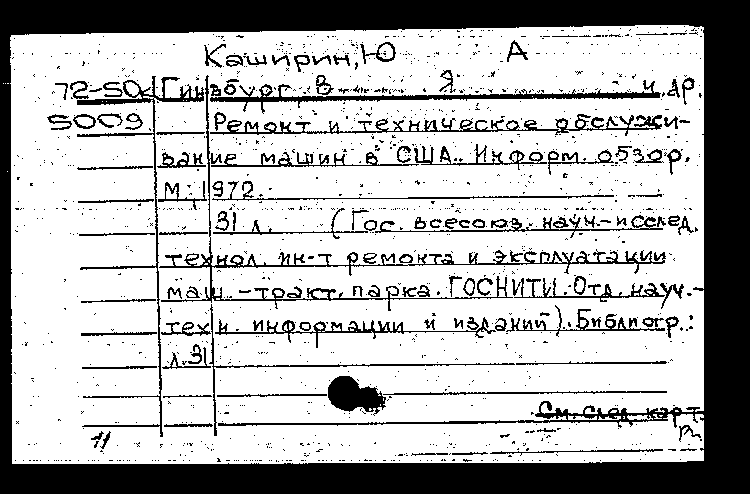 Каширин, Ю А
72-50 Гинзбург, В Я и др.
5009 Ремонт и техническое обслужи-
вание машин в США. Информ. обзор.
М., 1972.
31 л. (Гос. всесоюз. науч.-исслед.
технол. ин-т ремонта и эксплуатации
маш.-тракт. парка. ГОСНИТИ. Отд. науч.-
техн. информации и изданий). Библиогр.:
л. 31
См. след. карт.
11